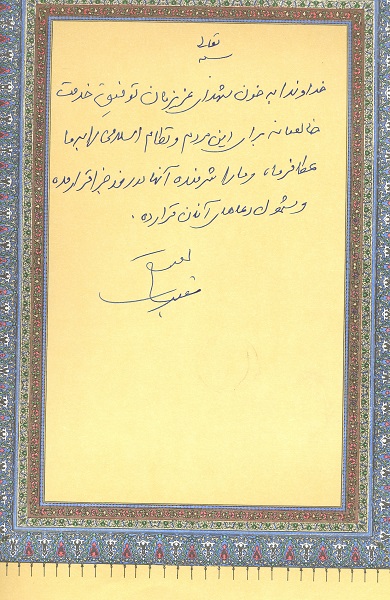 بسمه تعالی
خداوندا به خون شهدای عزیزمان توفیق خدمت
خالصانه برای این مردم و نظام اسلامی را به ما
عطا فرما، و ما را شرمنده آنها در روز جزا قرار مده
و مشمول دعاهای آنان قرار ده.